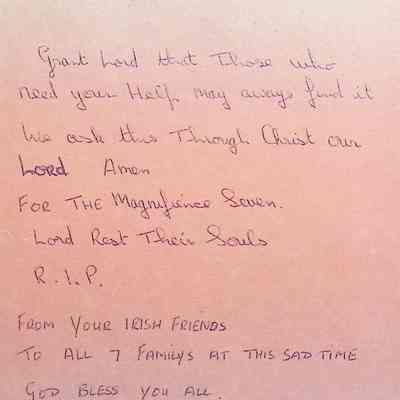 Grant Lord that Those who
need your Help may aways find it
We ask this Through Christ our
Lord Amen
FOR THE Magnifience Seven.
Lord Rest Their Souls
R.I.P.
FROM YOUR IRISH FRIENDS
TO ALL 7 FAMILYS AT THIS SAD TIME
GOD BLESS YOU ALL.